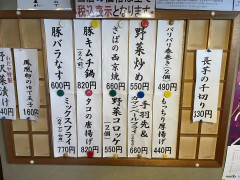 税込表示となります
長芋の千切り
330円
パリパリ春巻き
490円
もっちり唐揚げ
440円
野菜炒め
660円
手羽先&
カマンベールフライ
550円
さばの西京焼
660円
野菜コロッケ
(2個)
550円
豚キムチ鍋
820円
タコの唐揚げ
820円
豚バラなす
600円
ミックスフライ
770円
ゆで玉子
160円
野沢菜漬け